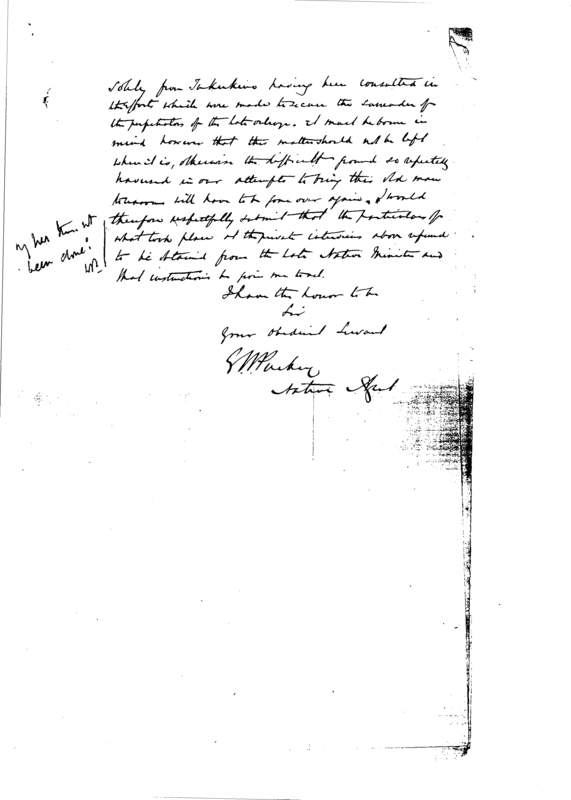 solely from Tukukino having been consulted in
the efforts which were made to secure the surrender of
the perpetrators of the late outrage. It must be borne in
mind however that this matter should not be left
where it is, otherwise the difficult ground so repeatedly
traversed in our attempts to bring this old man
to reason will have to be gone over again. I would
therefore respectfully submit that the particulars of
what took place at the private interviews above referred
to be obtained from the late Native Minister and
that instructions be given me to act.
I have the honor to be
Sir
Your Obedient Servant
Native Agent
why has this not
been done?